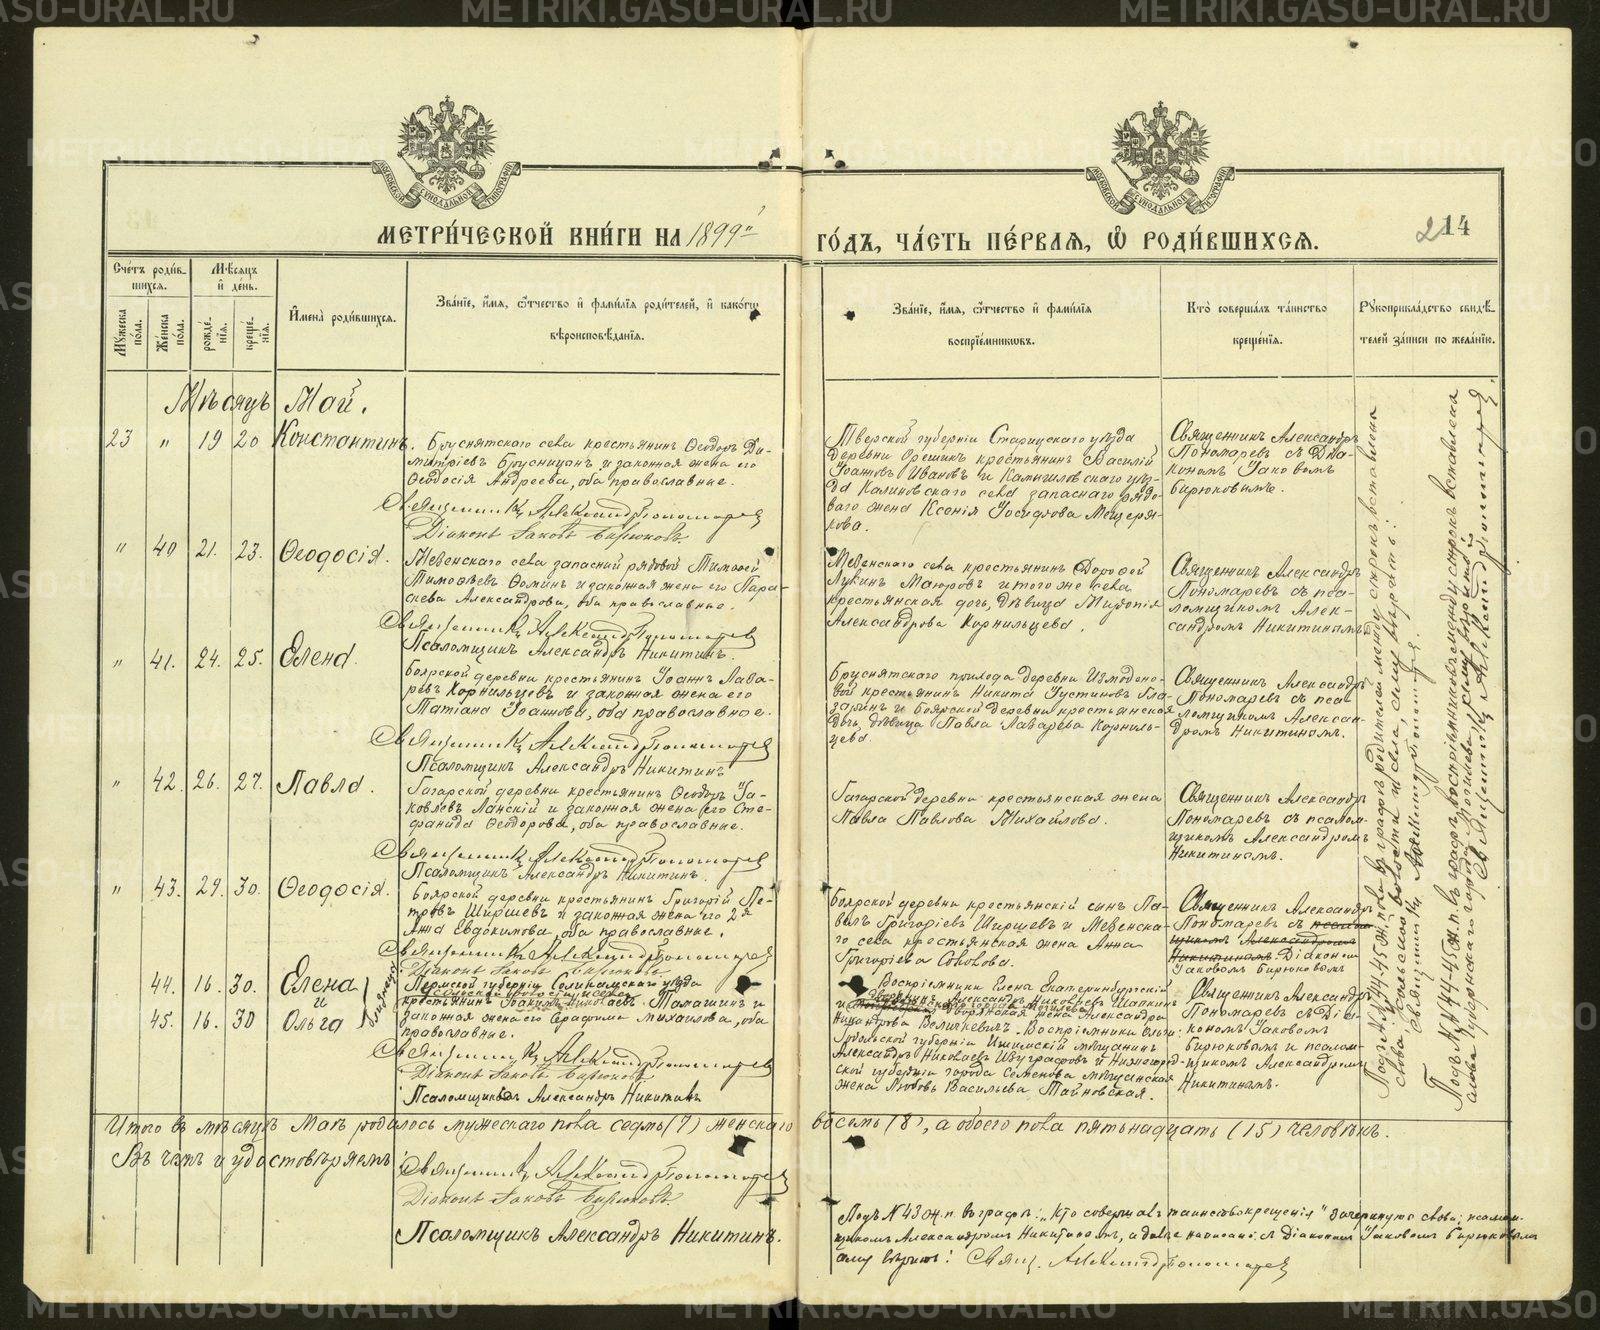 METRIKI.GASO-URAL.RU
МЕТРИ́ЧЕСКОЙ КНИ́ГИ НА 1899й ГО́ДЪ, ЧА́СТЬ ПЕ́РВАЯ, Ѡ РОДИ́ВШИХСЯ.
214
МОСКОВСКОЙ СѴНОДАЛЬНОЙ ТИПОГРАФІИ
Сче́тъ роди́в-
шихся.
Мѣ́сяцъ
и де́нь.
Мꙋ́жеска
по́ла.
Же́нска
по́ла.
рожде́-
нія.
креще́-
нія.
Имена̀ роди́вшихся.
Зва́нїе, и́мя, ѻ́тчество и фами́лїя роди́телей, и како́гѡ
вѣроисповѣ́данїя.
Зва́нїе, и́мя, ѻ́тчество и фами́лїя
воспрїе́мникѡвъ.
Кто̀ соверша́лъ та́инство
креще́нїя.
Рꙋкоприкла́дство свидѣ́-
телей за́писи по жела́нїю.
Мѣсяцъ Май.
23 " 19 20 Константинъ.
Бруснятскаго села крестьянинъ Ѳеодоръ Ди-
митріевъ Брусницынъ и законная жена его
Ѳеодосія Андреева, оба православные.
Священникъ Александръ Пономаревъ
Діаконъ Іаковъ Бирюковъ.
Тверской губерніи Старицкаго уѣзда
деревни Орешикъ крестьянинъ Василій
Іоанновъ Ивановъ и Камышловскаго уѣз-
да Калиновскаго села запаснаго рядо-
ваго жена Ксенія Іосифова Мещеря-
кова.
Священникъ Александръ
Пономаревъ съ Діа-
кономъ Іаковомъ
Бирюковымъ.
" 40 21. 23. Ѳеодосія.
Мезенскаго села запасный рядовой Тимоѳей
Тимоѳеевъ Ѳоминъ и законная жена его Пара-
скева Александрова, оба православные.
Священникъ Александръ Пономаревъ
Псаломщикъ Александръ Никитинъ.
Мезенскаго села крестьянинъ Дороѳей
Лукинъ Маюровъ и того же села
крестьянская дочь, дѣвица Миропія
Александрова Корнильцева.
Священникъ Александръ
Пономаревъ съ пса-
ломщикомъ Алек-
сандромъ Никитинымъ
" 41. 24. 25. Елена.
Боярской деревни крестьянинъ Іоаннъ Лаза-
ревъ Корнильцевъ и законная жена его
Татіана Іоаннова, оба православные.
Священникъ Александръ Пономаревъ
Псаломщикъ Александръ Никитинъ
Бруснятскаго прихода деревни Измодено-
вой крестьянинъ Никита Іустиновъ Гла-
заринъ и Боярской деревни крестьянская
дочь, дѣвица Павла Лазарева Корниль-
цева.
Священникъ Александръ
Пономаревъ съ пса-
ломщикомъ Алексан-
дромъ Никитинымъ.
" 42. 26. 27. Павла.
Гагарской деревни крестьянинъ Ѳеодоръ Іа-
ковлевъ Ланскій и законная жена его Сте-
фанида Ѳеодорова, оба православные.
Священникъ Александръ Пономаревъ
Псаломщикъ Александръ Никитинъ.
Гагарской деревни крестьянская жена
Павла Павлова Михайлова.
Священникъ Александръ
Пономаревъ съ псалом-
щикомъ Александромъ
Никитинымъ.
" 43. 29. 30. Ѳеодосія.
Боярской деревни крестьянинъ Григорій Пе-
тровъ Ширшевъ и законная жена его 2я
Анна Евдокимова, оба православные.
Священникъ Александръ Пономаревъ
Діаконъ Іаковъ Бирюковъ
Боярской деревни крестьянскій сынъ Па-
велъ Григоріевъ Ширшевъ и Мезенска-
го села крестьянская жена Анна
Григоріева Соколова.
Священникъ Александръ
Пономаревъ съ псалом-
щикомъ Александромъ
Никитинымъ Діакономъ
Іаковомъ Бирюковымъ
44. 16. 30. Елена
и
45. 16. 30 Ольга
близнецы
Пермской губерніи Соликамскаго уѣзда
крестьянинъ Іоакимъ Николаевъ Талашинъ и
законная жена его Серафима Михаилова, оба
православные.
Священникъ Александръ Пономаревъ
Діаконъ Іаковъ Бирюковъ
Псаломщикъ Александръ Никитинъ
Воспріемники Елены Екатеринбургскій
Александръ Николаевъ Шапкинъ
и дворянская жена Александра
Никандрова Величкевичъ. Воспріемники Ольги:
Тобольской губерніи Ишимскій мѣщанинъ
Александръ Николаевъ Изуграфовъ и Нижегород-
ской губерніи города Семенова мѣщанская
жена Любовь Васильева Тайновская.
Священникъ Александръ
Пономаревъ съ Діа-
кономъ Іаковомъ
Бирюковымъ и псалом-
щикомъ Александромъ
Никитинымъ.
Итого въ мѣсяцѣ Маѣ родилось мужескаго пола семь (7) женскаго восемь (8), а обоего пола пятьнадцать (15) человѣкъ.
Въ чемъ и удостовѣряемъ:
Священникъ Александръ Пономаревъ
Діаконъ Іаковъ Бирюковъ.
Псаломщикъ Александръ Никитинъ.
Подъ № 43 ж. п. въ графѣ: "Кто совершалъ таинство крещенія" зачеркнуто слова: псалом-
щикомъ Александромъ Никитинымъ, а далѣе написано: съ Діакономъ Іаковомъ Бирюковымъ
сему вѣрить: Свящ. Александръ Пономаревъ